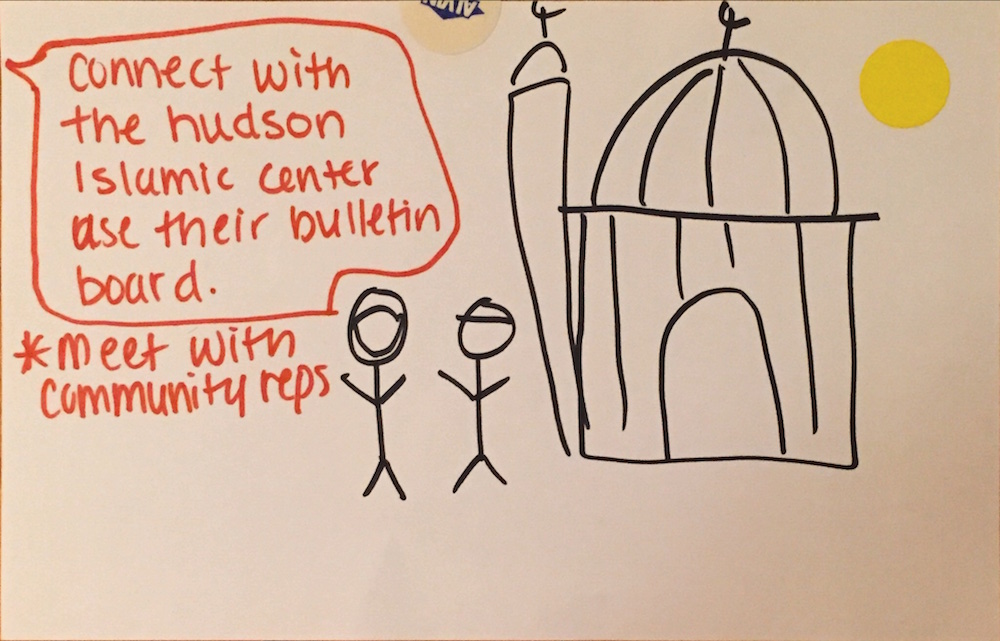 Connect with
the hudson
Islamic center
use their bulletin
board.
*Meet with
community reps